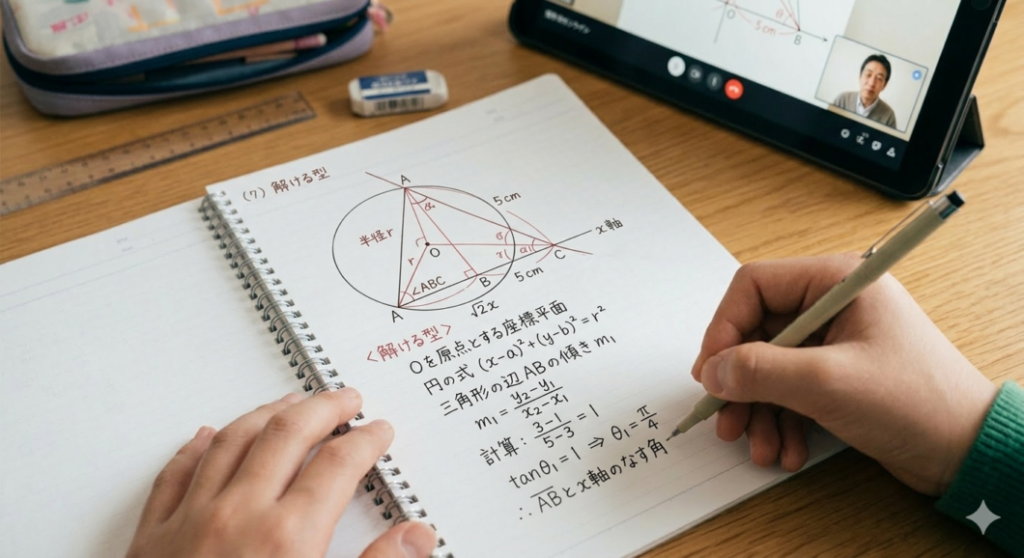 (7) 解ける型
A
5cm
半径r
O
r
∠ABC
x軸
C
B
5cm
A
√2x
<解ける型>
Oを原点とする座標平面
円の式 (x-a)²+(y-b)²=r²
三角形の辺ABの傾きm₁
m₁=(y₂-y₁)/(x₂-x₁)
計算: (3-1)/(5-3)=1
tanθ₁=1 ⇒ θ₁=π/4
∴ ABとx軸のなす角
O
5cm
B